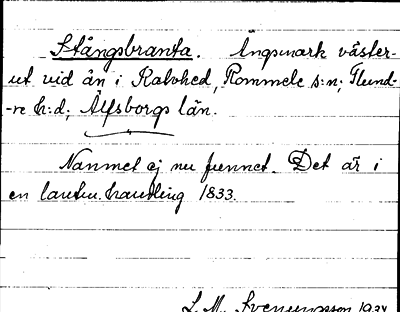 Stångsbranta. Ängsmark väster-
ut vid ån i Kalvhed, Rommele s:n; Flund-
-re h:d; Älfsborgs län.
Namnet ej nu funnet. Det är i
en lantm. handling 1833.
L. M. Svenungsson